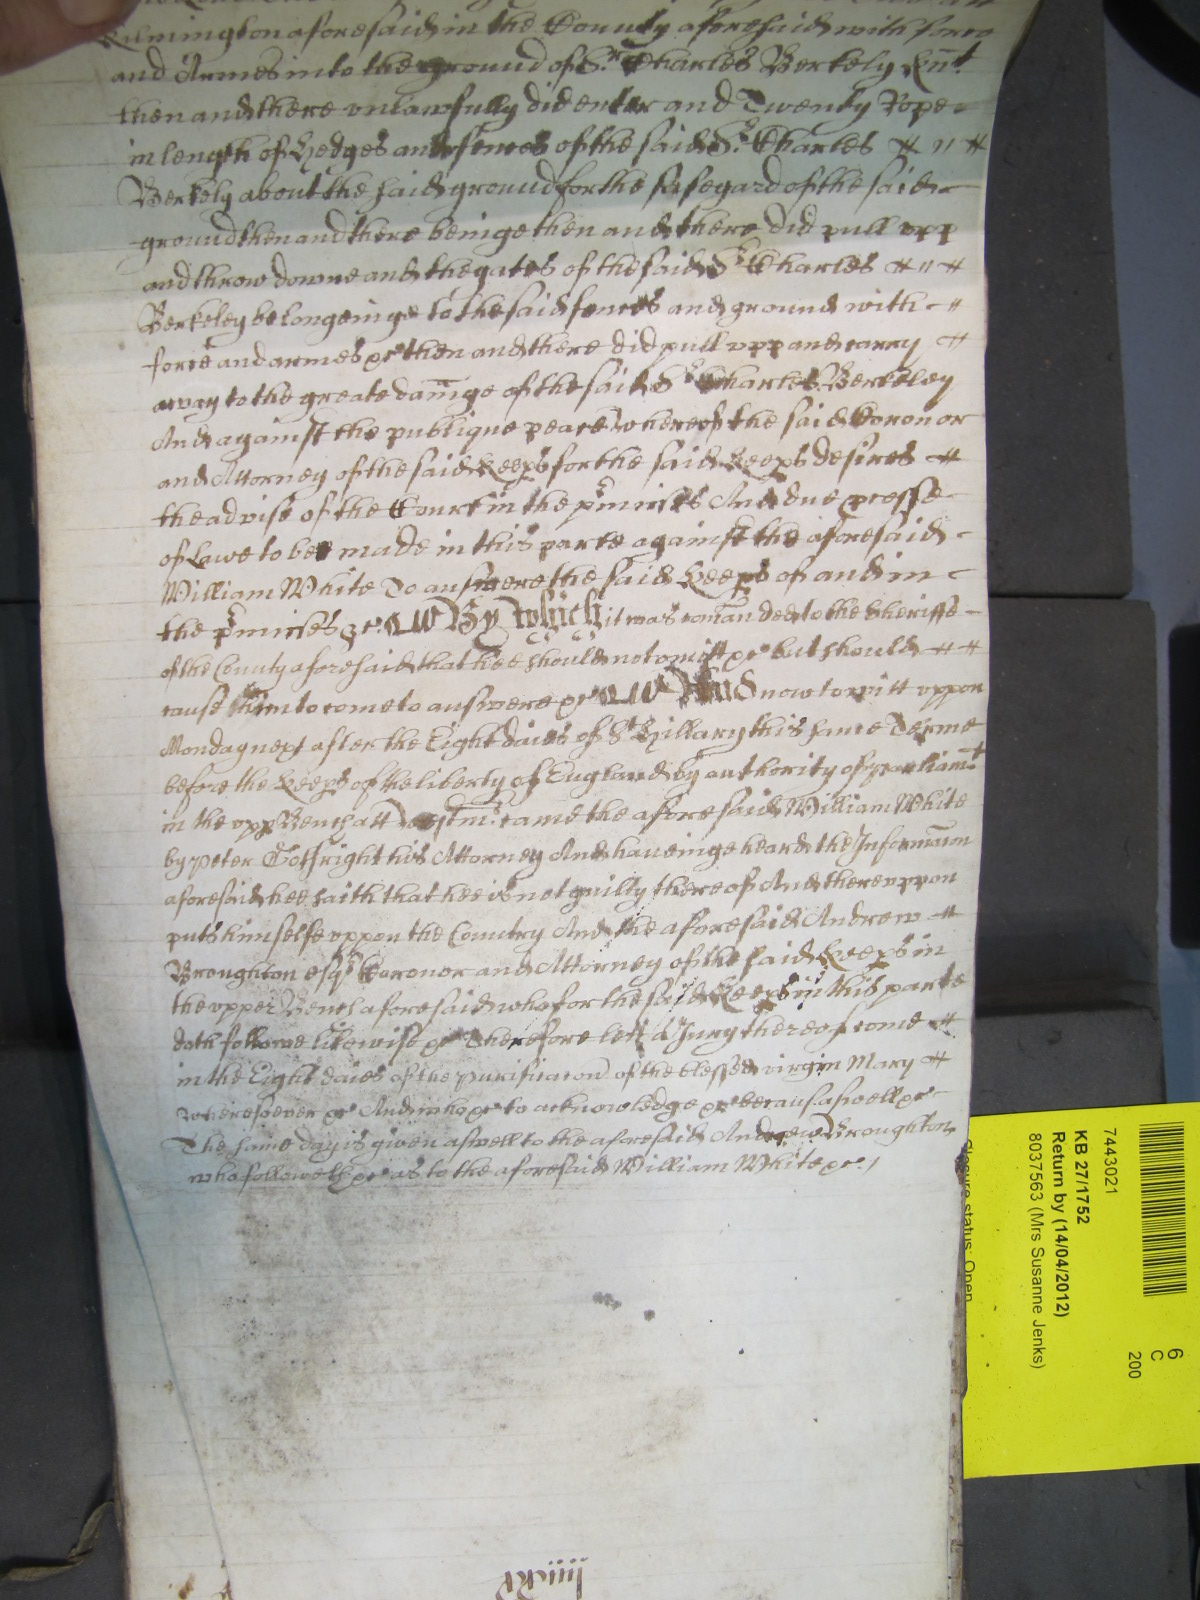 Kilmington aforesaid in the County aforesaid with force
and Armes into the ground of Sr Charles Berkely Knt
then and there unlawfully did enter and Twenty Rope
in length of hedges and fences of the said Sr Charles
Berkely about the said ground for the safegard of the said
ground then and there beinge then and there did pull upp
and throw downe and the gates of the said Sr Charles
Berkeley belongeinge to the said fences and ground with
force and armes &c then and there did pull upp and carry
away to the greate damage of the said Sr Charles Berkeley
And against the publique peace whereof the said Coronor
and Attorney of the said Keeps for the said Keeps desires
the advise of the Court in the pmisses And due pcesse
of Lawe to bee made in this parte against the aforesaid
William White To answere the said Keeps of and in
the pmisses &c By which it was comanded to the Sheriffe
of the County aforesaid that hee should not omitt &c but should
cause him to come to answere &c And now to witt uppon
Monday next after the Eight daies of St Hillary this same Terme
before the Keeps of the liberty of England by authority of parliamt
in the upp Bench att Westmr came the aforesaid William White
by Peter his Attorney And haveinge heard the Informacon
aforesaid hee saith that hee is not guilty thereof And thereuppon
puts himselfe uppon the Country And the aforesaid Andrew
Broughton esqr Coronor and Attorney of the said Keeps in
the upper Bench aforesaid who for the said Keeps in this parte
doth followe likewise &c Therefore lett a Jury thereof come
in the Eight daies of the purificacon of the blessed virgin Mary
wheresoever &c And who &c to acknowledge &c because aswell &c
The same day is given aswell to the aforesaid Andrew Broughton
who followeth &c as to the aforesaid William White &c /
7443021
KB 27/1752
Return by (14/04/2012)
8037563 (Mrs Susanne Jenks)
Closure status: Open
6
C
200